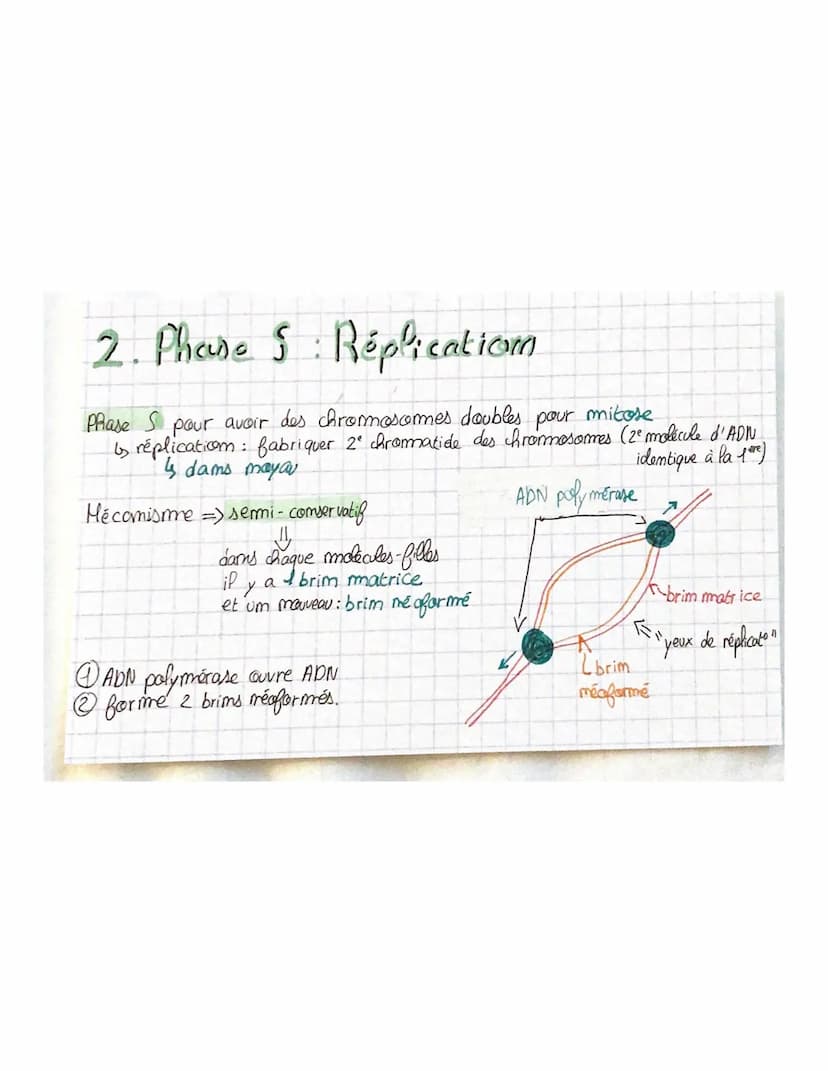 2. Phase S : Réplication
Phase S pour avoir des chromosomes doubles pour mitose
↳ réplication : fabriquer 2e chromatide des chromosomes (2e molécule d'ADN
identique à la 1ère)
↳ dans noyau
Mécanisme => semi-conservatif
⇓
dans chaque molécules-filles
il y a 1 brin matrice
et un nouveau : brin néoformé
① ADN polymérase ouvre ADN
② forme 2 brins néoformés.
ADN polymérase
brin matrice
"yeux de réplicat°"
brin
néoformé